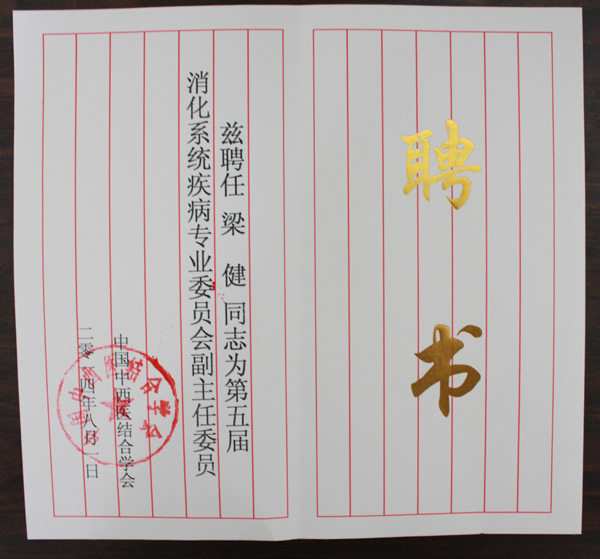 聘书
兹聘任 梁 健 同志为第五届
消化系统疾病专业委员会副主任委员
中国中西医结合学会
二零一四年八月一日
中国中西医结合学会